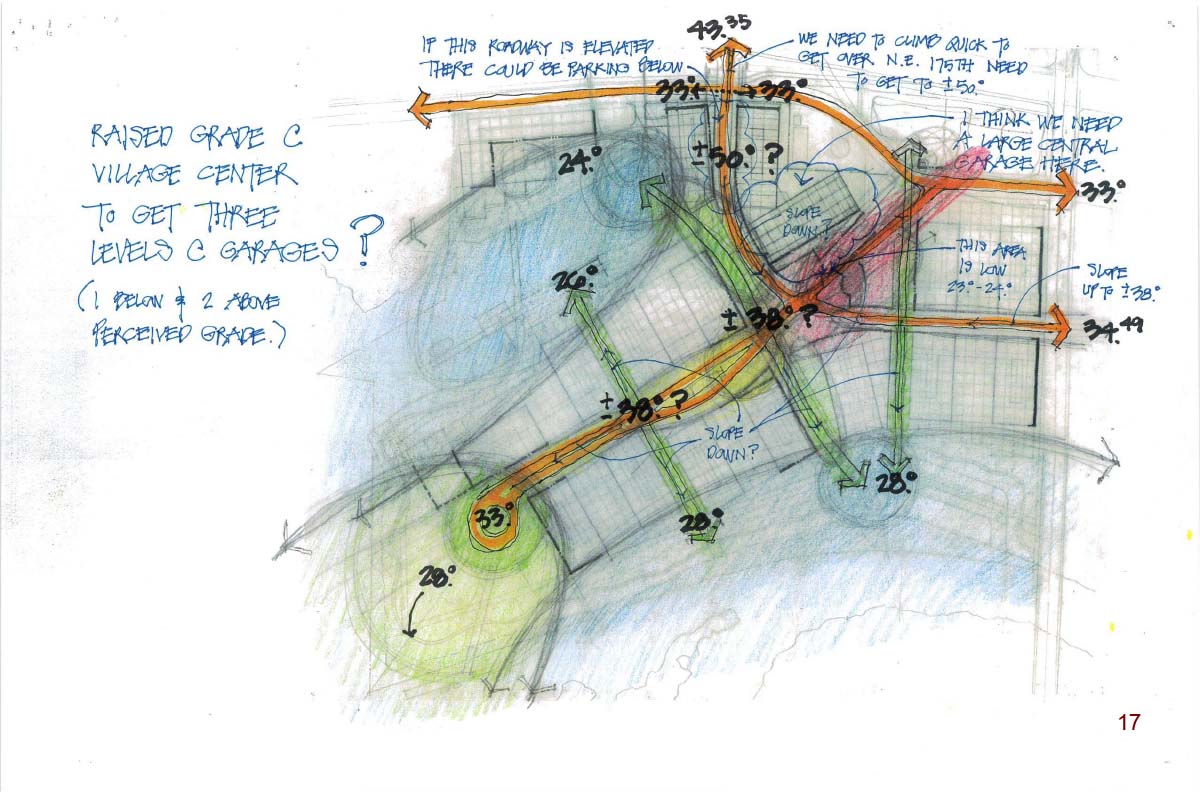 43.35
IF THIS ROADWAY IS ELEVATED
THERE COULD BE PARKING BELOW
WE NEED TO CLIMB QUICK TO
GET OVER N.E. 175TH NEED
TO GET TO ±50.°
33.°
33.°
I THINK WE NEED
A LARGE CENTRAL
GARAGE HERE.
RAISED GRADE C
VILLAGE CENTER
TO GET THREE
LEVELS C GARAGES ?
(1 BELOW & 2 ABOVE
PERCEIVED GRADE.)
24.°
±50.° ?
33.°
SLOPE
DOWN?
THIS AREA
IS LOW
23.°-24.°
SLOPE
UP TO ±38.°
26.°
± 38.° ?
34.49
± 38.° ?
SLOPE
DOWN?
28.°
33.°
28.°
28.°
17